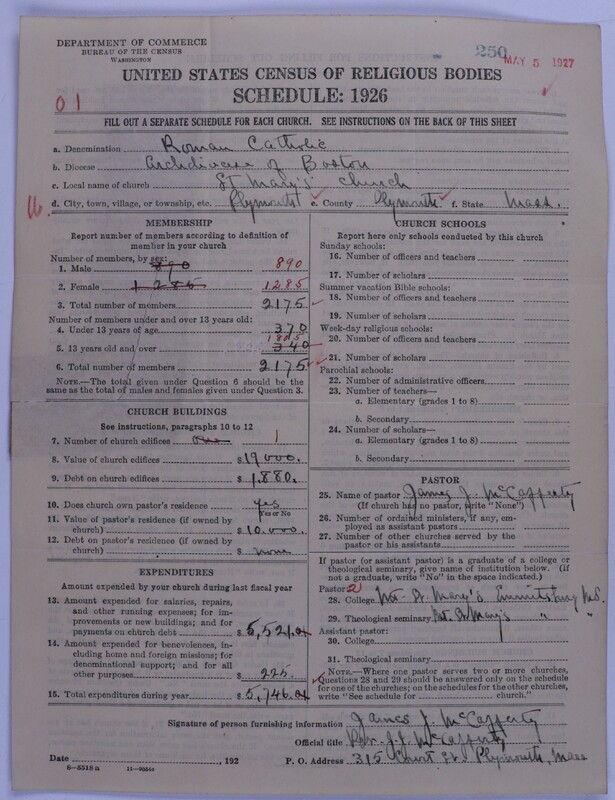 DEPARTMENT OF COMMERCE
BUREAU OF THE CENSUS
WASHINGTON
250
MAY 5 1927
UNITED STATES CENSUS OF RELIGIOUS BODIES
SCHEDULE: 1926
01
FILL OUT A SEPARATE SCHEDULE FOR EACH CHURCH. SEE INSTRUCTIONS ON THE BACK OF THIS SHEET
a. Denomination Roman Catholic
b. Diocese Archdiocese of Boston
c. Local name of church St Mary's Church
d. City, town, village, or township, etc. Plymouth e. County Plymouth f. State Mass.
MEMBERSHIP
Report number of members according to definition of member in your church
Number of members, by sex:
1. Male 890 890
2. Female 1285 1285
3. Total number of members 2175
Number of members under and over 13 years old:
4. Under 13 years of age 370
1805
5. 13 years old and over 340
6. Total number of members 2175
NOTE.—The total given under Question 6 should be the same as the total of males and females given under Question 3.
CHURCH BUILDINGS
See instructions, paragraphs 10 to 12
7. Number of church edifices one 1
8. Value of church edifices $ 19000.
9. Debt on church edifices $ 1,880.
10. Does church own pastor's residence yes
Yes or No
11. Value of pastor's residence (if owned by church) $ 10.000.
12. Debt on pastor's residence (if owned by church) $ none
EXPENDITURES
Amount expended by your church during last fiscal year
13. Amount expended for salaries, repairs, and other running expenses; for improvements or new buildings; and for payments on church debt $ 5,521.
14. Amount expended for benevolences, including home and foreign missions; for denominational support; and for all other purposes $ 225.
15. Total expenditures during year $ 5,746.
CHURCH SCHOOLS
Report here only schools conducted by this church
Sunday schools:
16. Number of officers and teachers
17. Number of scholars
Summer vacation Bible schools:
18. Number of officers and teachers
19. Number of scholars
Week-day religious schools:
20. Number of officers and teachers
21. Number of scholars
Parochial schools:
22. Number of administrative officers
23. Number of teachers—
a. Elementary (grades 1 to 8)
b. Secondary
24. Number of scholars—
a. Elementary (grades 1 to 8)
b. Secondary
PASTOR
25. Name of pastor James J. McCafferty
(If church has no pastor, write "None")
26. Number of ordained ministers, if any, employed as assistant pastors
27. Number of other churches served by the pastor or his assistants
If pastor (or assistant pastor) is a graduate of a college or theological seminary, give name of institution below. (If not a graduate, write "No" in the space indicated.)
Pastor: 2
28. College Mt. St. Mary's Emmitsburg Md.
29. Theological seminary Mt. St Mary's " "
Assistant pastor:
30. College
31. Theological seminary
NOTE.—Where one pastor serves two or more churches, Questions 28 and 29 should be answered only on the schedule for one of the churches; on the schedules for the other churches, write "See schedule for church."
Signature of person furnishing information James J. McCafferty
Official title Rev. J.J. McCafferty
Date , 192 P. O. Address 315 Court St. Plymouth, Mass
8—5518 a 11—9086